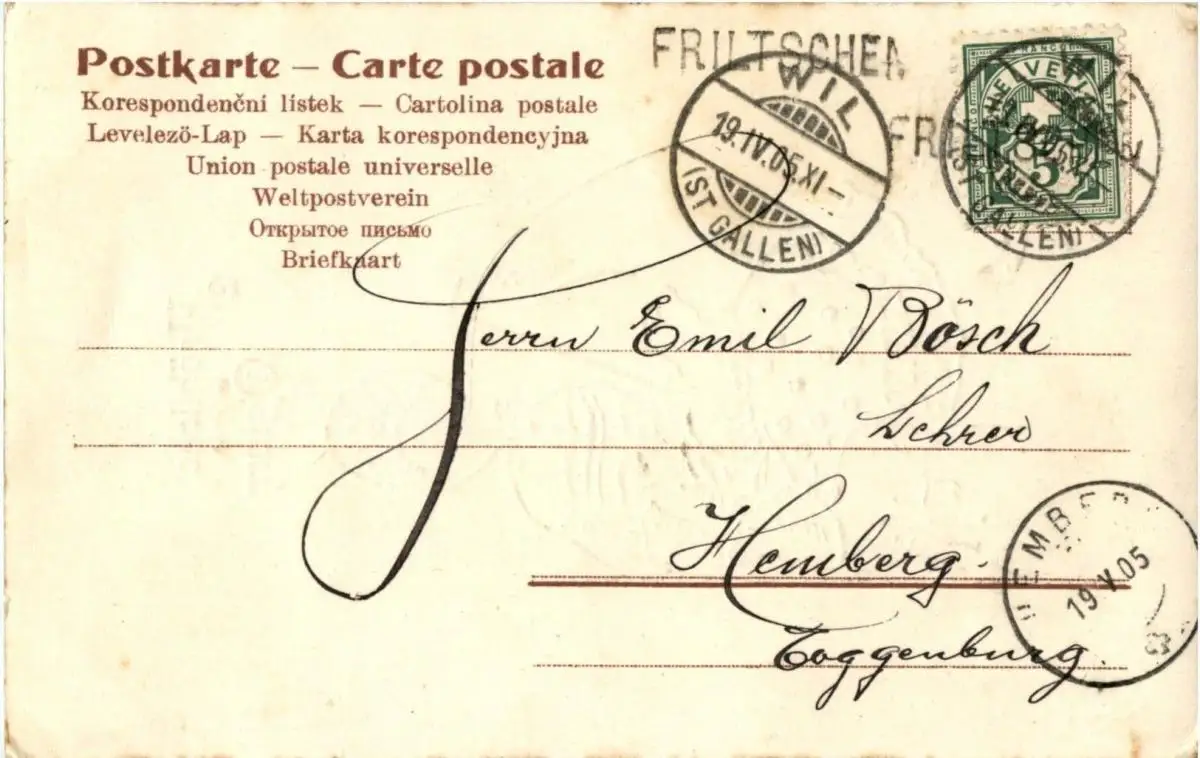 Postkarte – Carte postale
Korespondenční lístek — Cartolina postale
Levelezö-Lap — Karta korespondencyjna
Union postale universelle
Weltpostverein
Открытое письмо
Briefkaart
FRILTSCHEN
FRI
WIL
19.IV.05.XI–
(ST GALLEN)
FRANCO
HELVETIA
5
(ST GALLEN)
Herrn Emil Bösch
Lehrer
Hemberg.
Toggenburg.
HEMBER
19 V.05